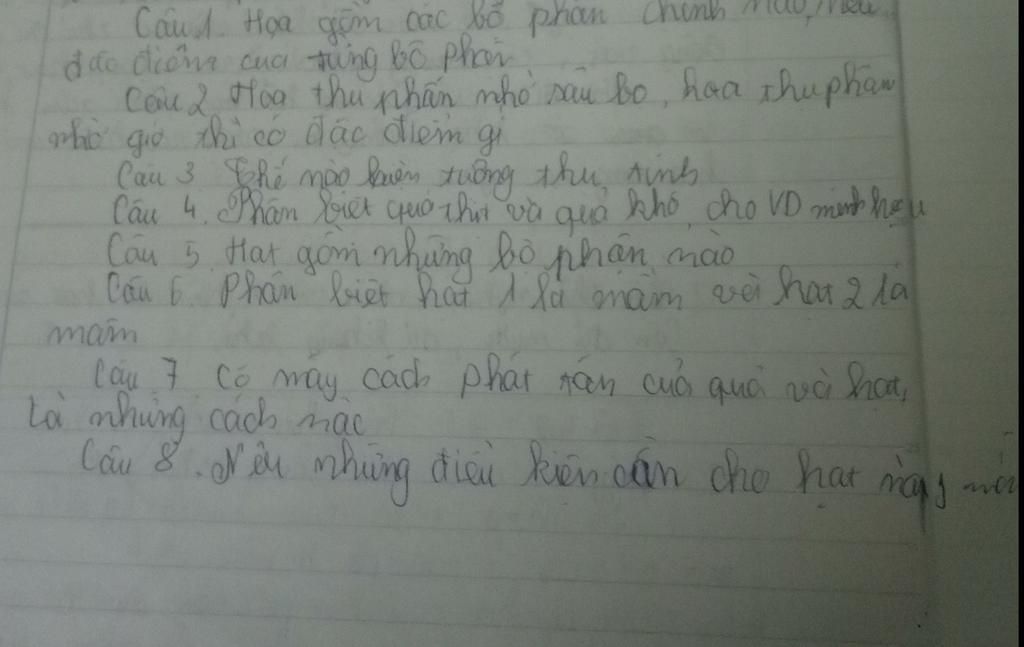 Câu 1. Hoa gồm các bộ phận chính nào, nêu
đặc điểm của từng bộ phận
Câu 2 Hoa thụ phấn nhờ sâu bọ, hoa thụ phấn
nhờ gió thì có đặc điểm gì
Câu 3 Thế nào hiện tượng thụ tinh
Câu 4. Phân biệt quả thịt và quả khô, cho VD minh họa
Câu 5. Hạt gồm những bộ phận nào
Câu 6. Phân biệt hạt 1 lá mầm với hạt 2 lá
mầm
Câu 7 Có mấy cách phát tán của quả và hạt,
Là những cách nào
Câu 8. Nêu những điều kiện cần cho hạt nảy